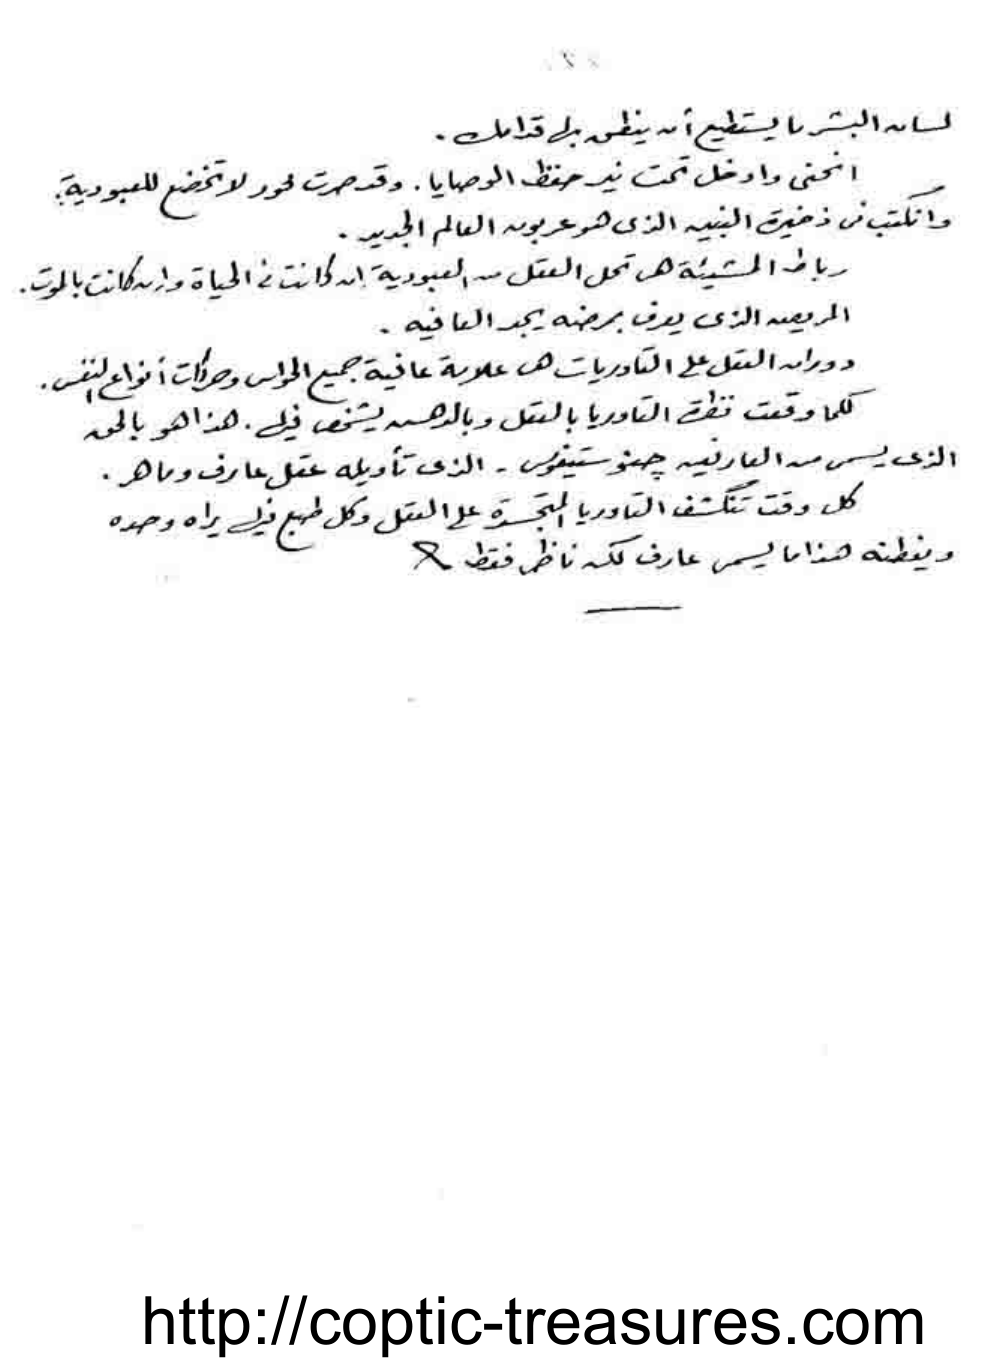 لسان البشر ما يستطيع أن ينطق بها قدامك .
انحنى وادخل تحت نير حفظ الوصايا . وقد صرت محرر لا تخضع للعبودية .
وانكتب فى ذخيرة البنين الذى هو عربون العالم الجديد .
رباط المشيئة هى تحل العقل من العبودية إن كانت فى الحياة وإن كانت بالموت .
المريض الذى يعرف بمرضه يجد العافيه .
دوران العقل على التاوريات هى علامة عافية جميع الحواس وحركات أنواع النفس .
كلما وقعت نظرة التاوريا بالعقل وبالذهن يشخص فيها . هذا هو بالحق
الذى يسمى من العارفين . الذى تأويله عقل عارف وماهر .
كل وقت تنكشف التاوريا المتجسدة على العقل وكل طبع فيها يراه وحده
ويفطنه هذا ما يسمى عارف لكن ناظر فقط
http://coptic-treasures.com